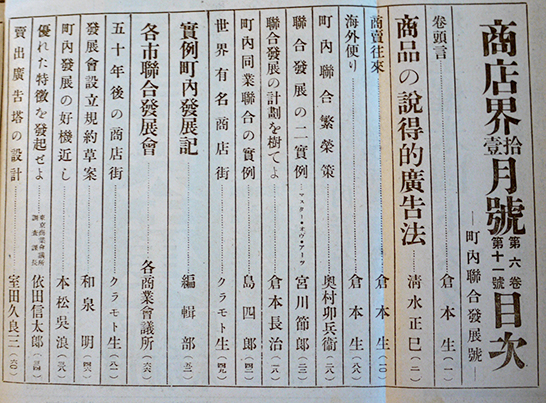 商店界拾壹月號 第六卷第十一號 目次
―町內聯合發展號―
卷頭言……倉本生(一)
商品の說得的廣告法……淸水正巳(二)
商賣往來……倉本生(一〇)
海外便り……倉本生(八八)
町內聯合繁榮策……奧村卯兵衞(二八)
聯合發展の二實例……マスター・オヴ・アーツ 宮川節郎(三三)
聯合發展の計劃を樹てよ……倉本長治(一八)
町內同業聯合の實例……島四郎(四二)
世界有名商店街……クラモト生(四九)
實例町內發展記……編輯部(五二)
各市聯合發展會……各商業會議所(六六)
五十年後の商店街……クラモト生(八一)
發展會設立規約草案……和泉明(四六)
町內發展の好機近し……本松吳浪(三八)
優れた特徵を發起せよ……東京商業會議所調査課長 依田信太郎(三四)
賣出廣告塔の設計……室田久良三(六〇)